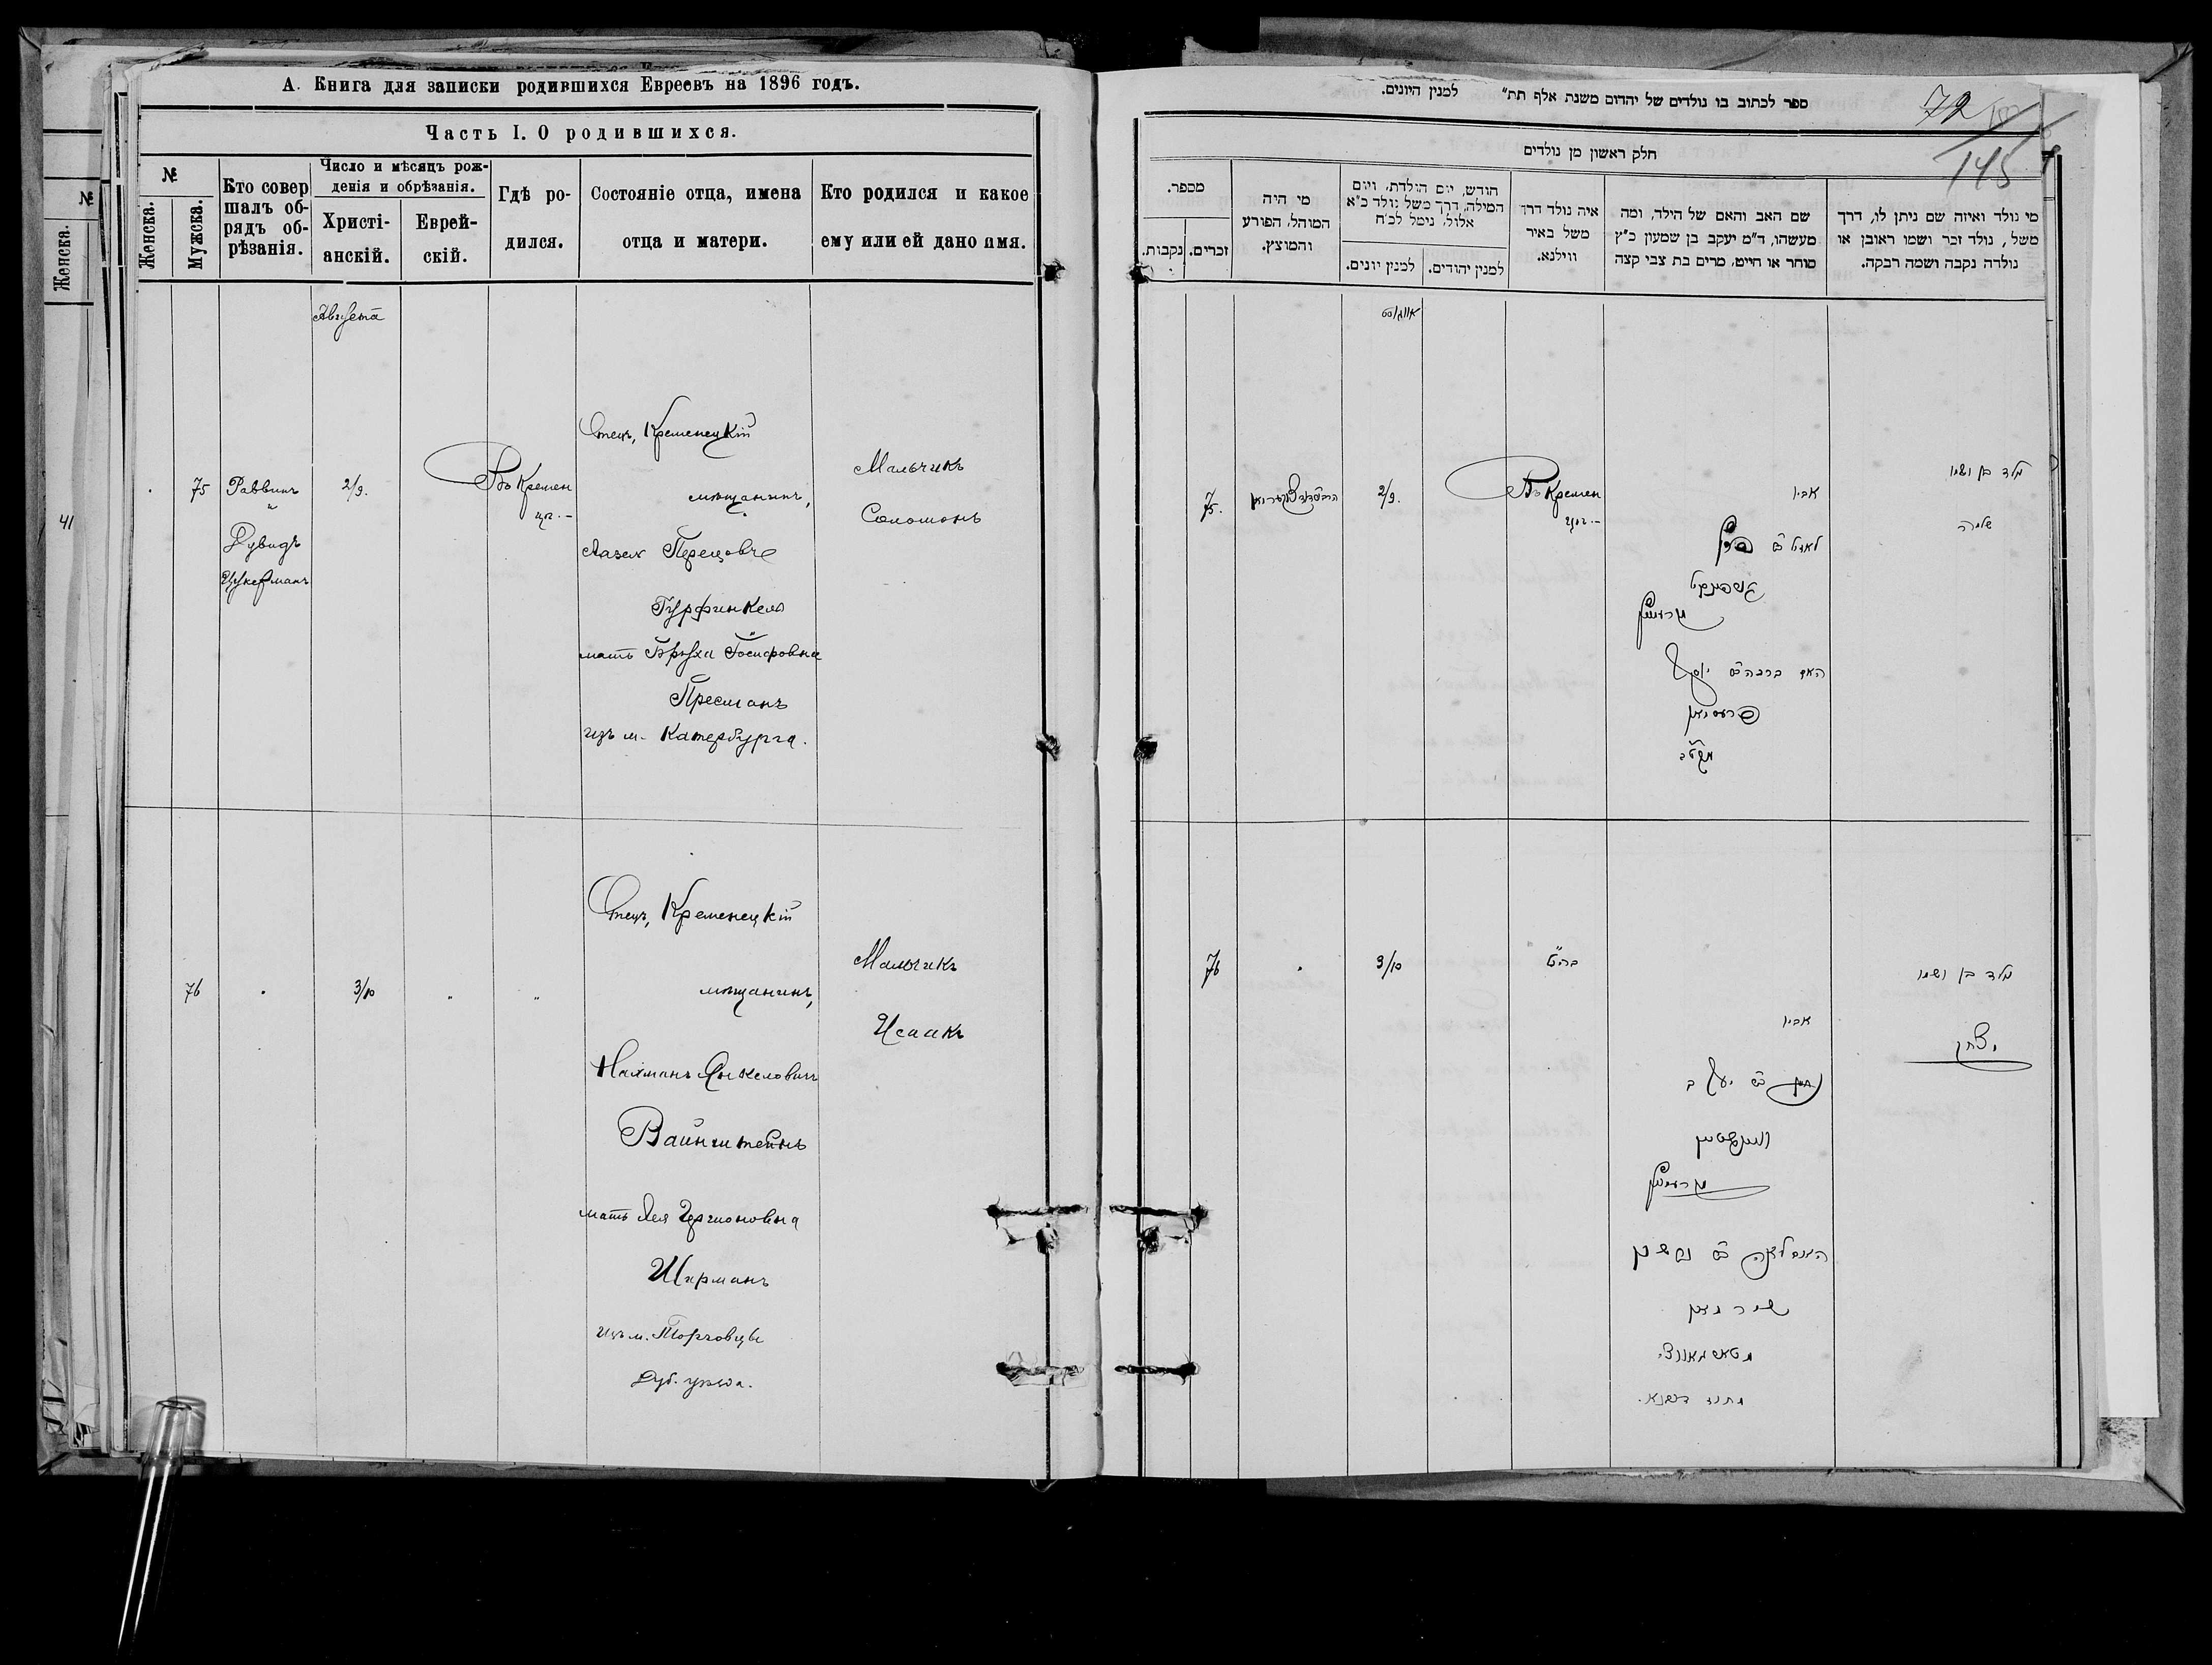 А. Книга для записки родившихся Евреевъ на 1896 годъ.
Часть I. О родившихся.
№
Женска.
Мужска.
Кто совер
шалъ об-
рядъ об-
рѣзанія.
Число и мѣсяцъ рож-
денія и обрѣзанія.
Христі-
анскій.
Еврей-
скій.
Гдѣ ро-
дился.
Состояніе отца, имена
отца и матери.
Кто родился и какое
ему или ей дано имя.
Августа
75
Раввинъ
и
Дувидъ
Цукерманъ
2/9.
Въ Кремен
цѣ.-
Отецъ, Кременецкій
мѣщанинъ,
Лазел Перецовъ
Гурфинкель
мать Бруха Іосифовна
Пресманъ
изъ м. Катербурга.
Мальчикъ
Соломонъ
76
3/10
Отецъ, Кременецкій
мѣщанинъ,
Нахманъ Янкелович
Вайнштейнъ
мать Лея
Ширманъ
изъ м. Торговцы
Дуб. уѣзда.
Мальчикъ
Исаакъ
№
Женска.
41
ספר לכתוב בו נולדים של יהדום משנת אלף תת״ למנין היונים.
72
145
חלק ראשון מן נולדים
מספר.
נקבות.
זכרים.
מי היה
המוהל, הפורע
והמוצץ.
חודש, יום הולדת, ויום
המילה, דרך משל נולד כ״א
אלול, נימל לכ״ח
למנין יונים.
למנין יהודים.
איה נולד דרך
משל באיר
ווילנא.
שם האב והאם של הילד, ומה
מעשהו, ד״מ יעקב בן שמעון כ״ץ
סוחר או חייט, מרים בת צבי קצה
מי נולד ואיזה שם ניתן לו, דרך
משל, נולד זכר ושמו ראובן או
נולדה נקבה ושמה רבקה.
אווגוסט
75.
2/9.
Въ Кремен
цѣ.-
אביו
פרעסמאן
נולד בן ושמו
שלמה
76
3/10
אביו
יעקב
וויינשטיין
נולד בן ושמו
יצחק